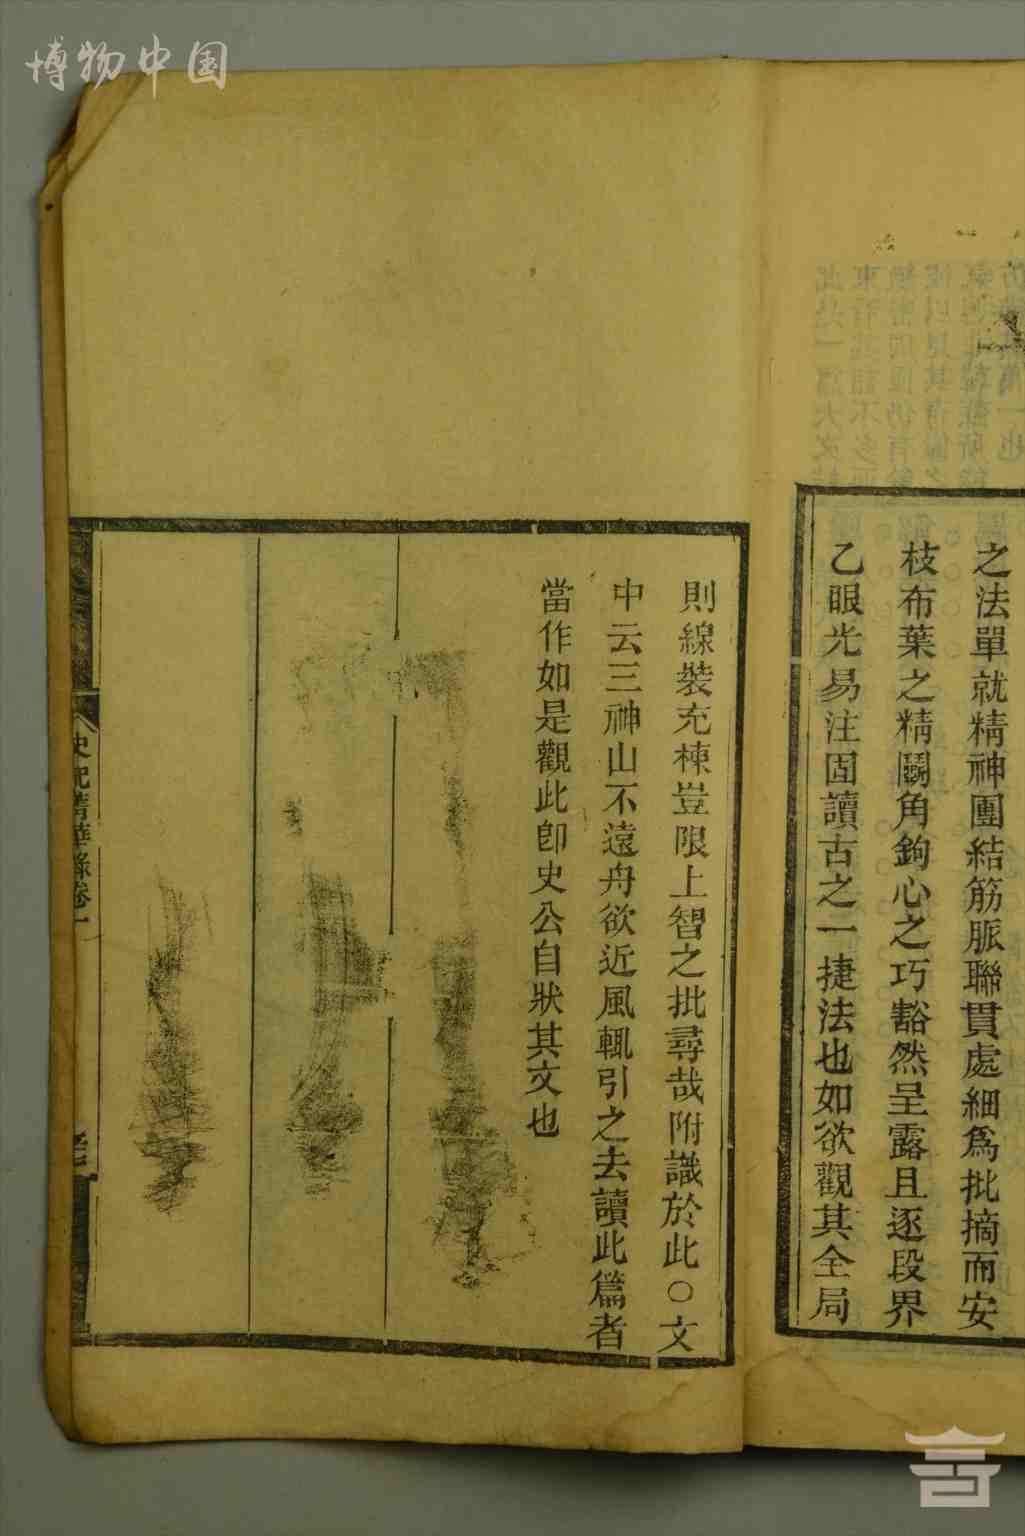 博物中国
之法單就精神團結筋脈聯貫處細爲批摘而安
枝布葉之精鬭角鉤心之巧豁然呈露且逐段界
乙眼光易注固讀古之一捷法也如欲觀其全局
則線裝充棟豈限上智之批尋哉附識於此○文
中云三神山不遠舟欲近風輒引之去讀此篇者
當作如是觀此卽史公自狀其文也
史記菁華錄卷一